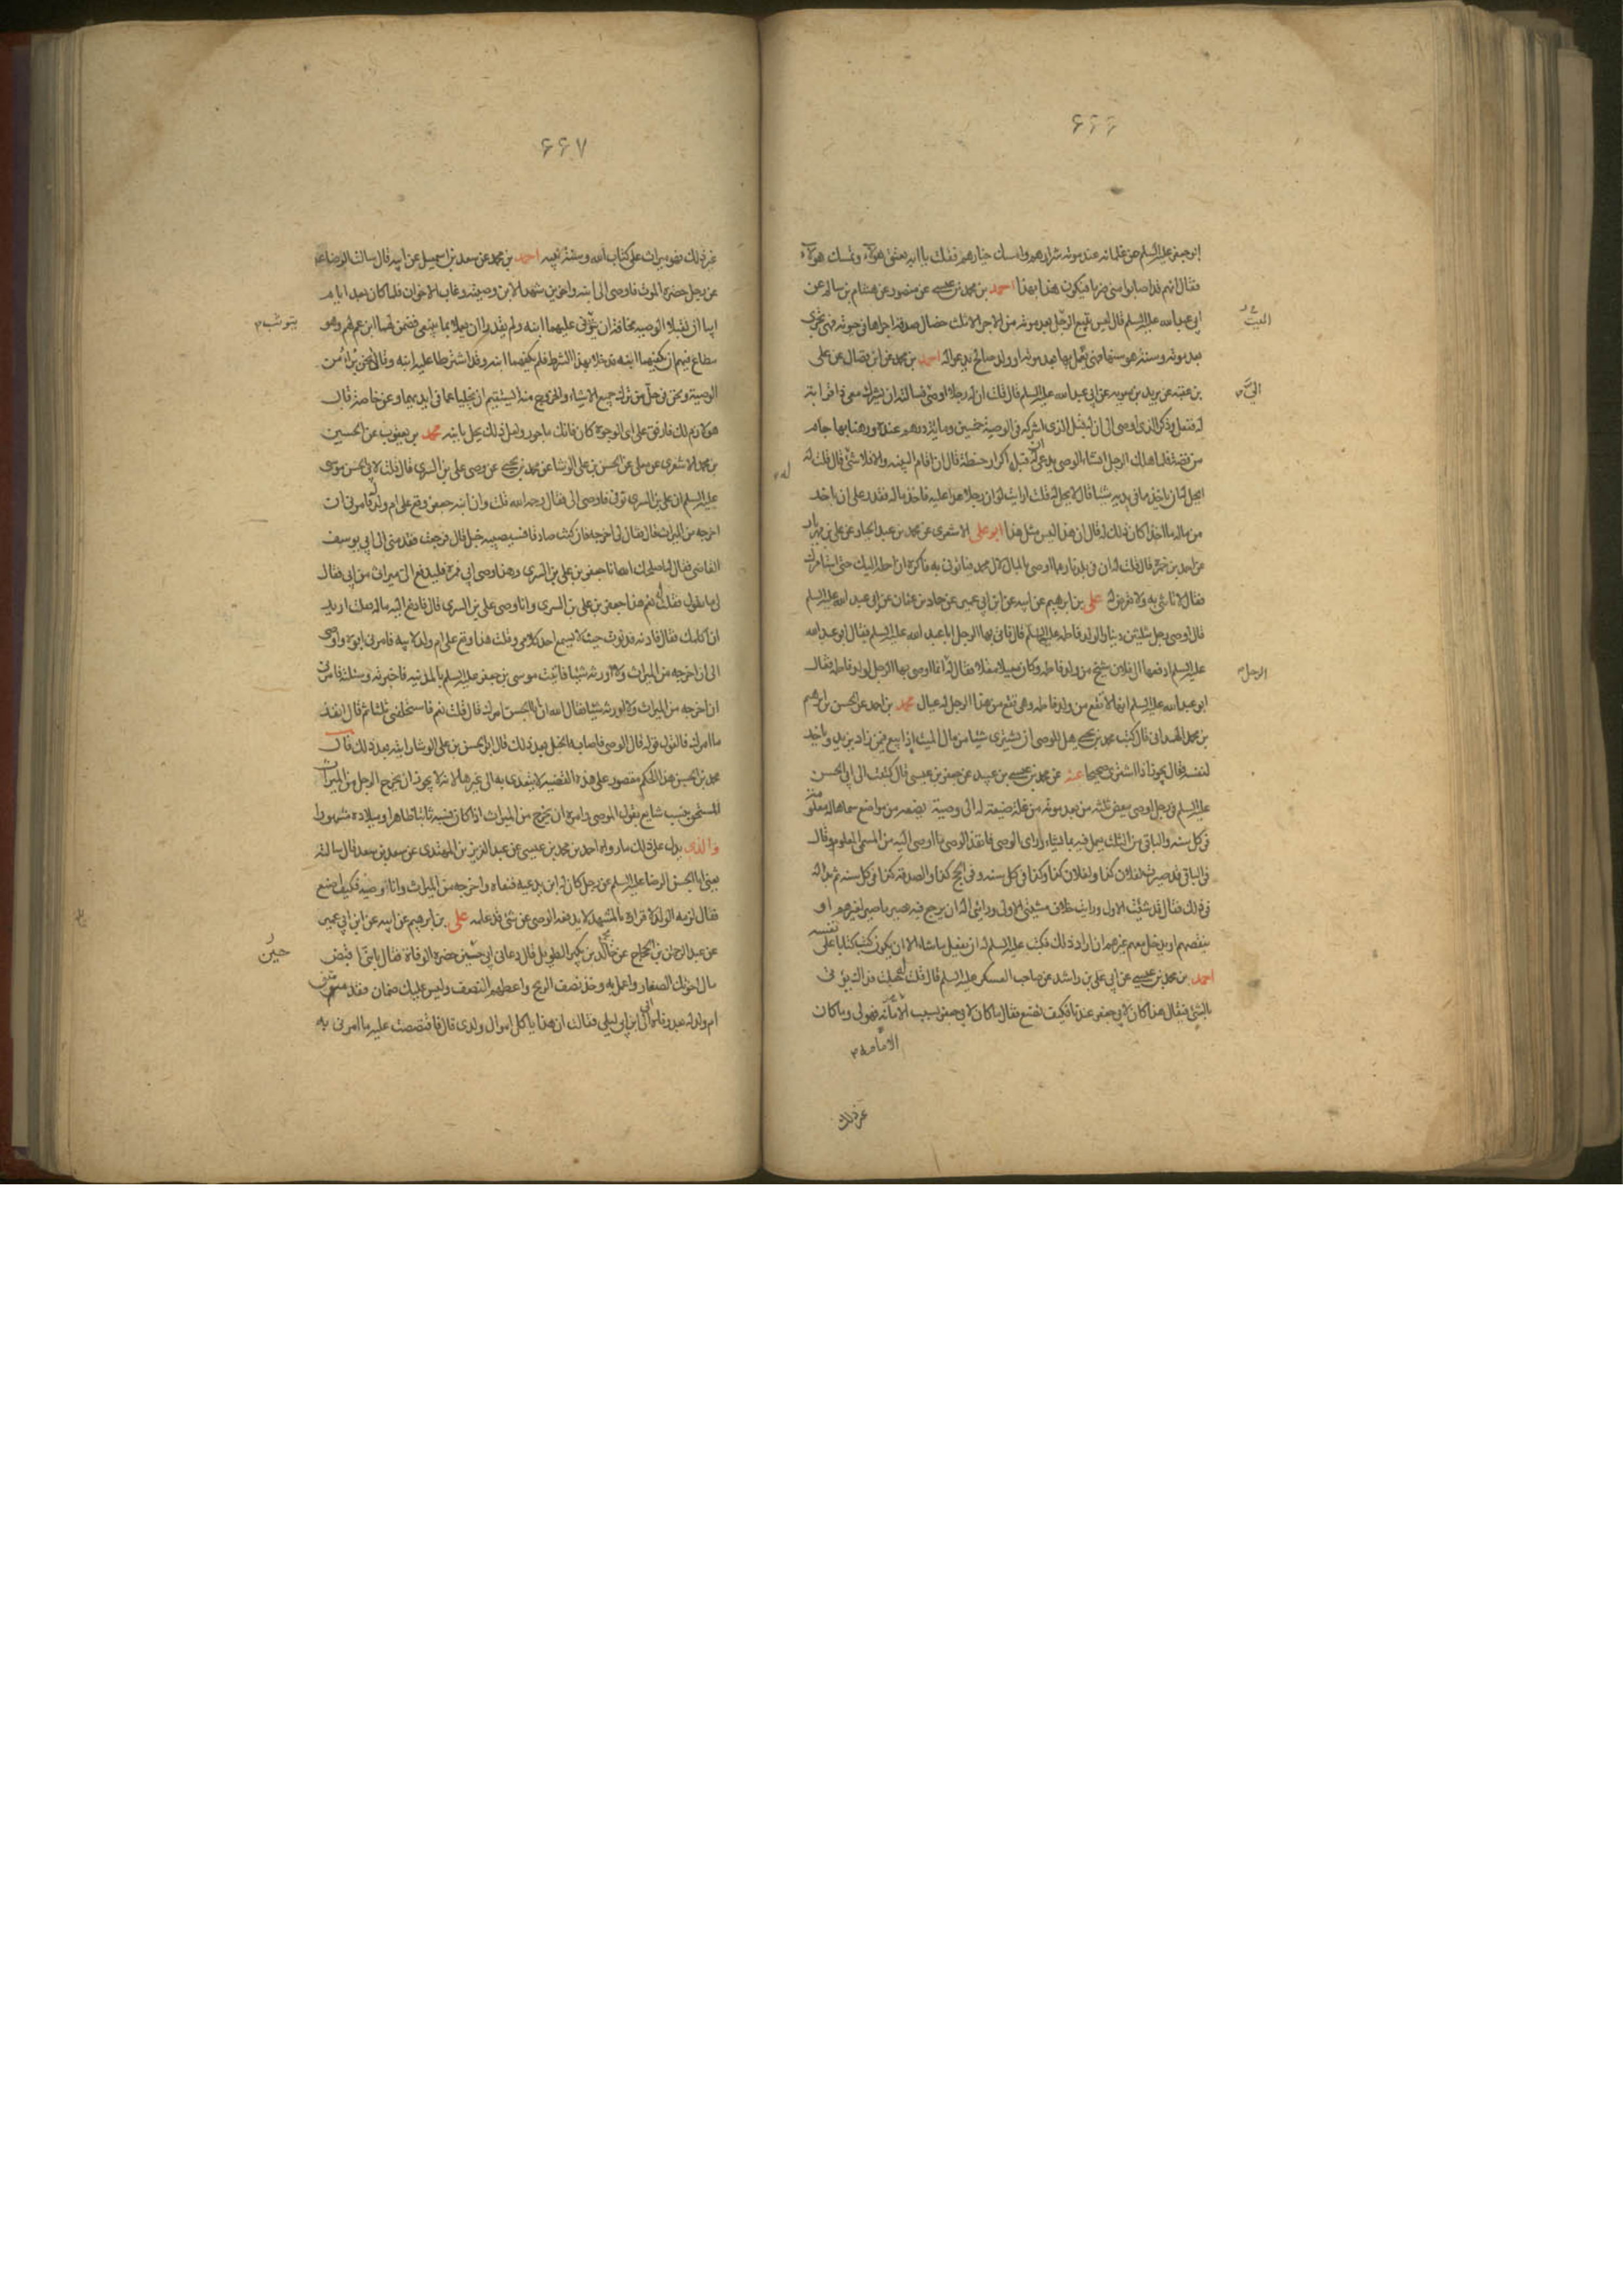 ۶۶۶
ابو جعفر علیه السلم من غلمانه عند موته شرارهم وامسك خیارهم فقلت یا ابه تعتق هولاء وتمسك هولاء
فقال انهم قد اصابوا منی ضربا فیكون هذا بهذا احمد بن محمد بن عیسی عن منصور عن هشام بن سالم عن
ابی عبد الله علیه السلم قال لیس یتبع الرجل بعد موته من الاجر الا ثلث خصال صدقة اجراها فی حیوته فهی تجری
بعد موته وسنة هو سنها فهی یعمل بها بعد موته او ولد صالح یدعو له احمد بن محمد عن ابن فضال عن علی
بن عقبه عن برید بن معویه عن ابی عبد الله علیه السلم قال قلت له ان رجلا اوصی فسالته ان یشرك معی ذا قرابة
له ففعل وذكر الذی اوصی الی ان له قبل الذی اشركه فی الوصیة خمسین ومایة درهم عنده ورهنا بها جام
من فضة فلما هلك الرجل انشاء الوصی یدعی ان له قبله اكرار حنطة قال ان اقام البینه والا فلا شی له قال قلت له
ایحل له ان یاخذ مما فی یدیه شیئا قال لا یحل له قلت ارایت لو ان رجلا عدا علیه فاخذ ماله فقدر علی ان یاخذ
من ماله ما اخذ اكان ذلك له قال ان هذا لیس مثل هذا ابو علی الاشعری عن محمد بن عبد الجبار عن علی بن مهزیار
عن احمد بن حمزه قال قلت له ان فی بلدنا ربما اوصی بالمال لآل محمد فیاتونی به فاكره ان احمله الیك حتی استامرك
فقال لا تاتنی به ولا تعرض له علی بن ابرهیم عن ابیه عن ابن ابی عمیر عن حماد بن عثمان عن ابی عبد الله علیه السلم
قال اوصی رجل بثلثین دینارا لولد فاطمه علیها السلم قال فاتی بها الرجل ابا عبد الله علیه السلم فقال ابو عبد الله
علیه السلم ادفعها الی فلان شیخ من ولد فاطمه وكان معیلا مقلا فقال له انما اوصی بها الرجل لولد فاطمه فقال
ابو عبد الله علیه السلم انها لا تقع من ولد فاطمه وهی تقع من هذا الرجل له عیال محمد بن احمد عن الحسن بن ابرهیم
بن محمد الهمدانی قال كتب محمد بن یحیی هل للوصی ان یشتری شیئا من مال المیت اذا بیع فیمن زاد یزید ویاخذ
لنفسه فقال یجوز اذا اشتری صحیحا عنه عن محمد بن عیسی بن عبید عن جعفر بن عیسی قال كتبت الی ابی الحسن
علیه السلم فی رجل اوصی ببعض ثلثه من بعد موته من غلة ضیعة له الی وصیه یضعه من مواضع سماها له معلومة
فی كل سنه والباقی من الثلث یعمل فیه بما شاء ورای الوصی فانفذ الوصی ما اوصی الیه من المسمی المعلوم وقال
فی الباقی قد صیرت لفلان كذا ولفلان كذا وكذا فی كل سنه وفی الحج كذا والصدقه كذا فی كل سنه ثم بدا له
فی ذلك فقال قد شئت الاول ورایت خلاف مشیتی الاولی ورائی اله ان یرجع فیه فیصیر ما صیر لغیرهم او
ینقصهم او یدخل معهم غیرهم ان اراد ذلك فكتب علیه السلم له ان یفعل ما شاء الا ان یكون كتب كتابا علی نفسه
احمد بن محمد بن عیسی عن ابی علی بن راشد عن صاحب العسكر علیه السلم قال قلت له جعلت فداك نؤتی
بالشئ فیقال هذا كان لابی جعفر عندنا فكیف نصنع فقال ما كان لابی جعفر بسبب الامامه فهو لی وما كان
المیت
الرجل
له
الامامه
غیر ذلك
۶۶۷
غیر ذلك فهو میراث علی كتاب الله وسنة نبیه احمد بن محمد عن سعد بن اسمعیل عن ابیه قال سالت الرضا علیه
عن رجل حضره الموت فاوصی الی ابنه واخوین شهد الابن وصیته وغاب الاخوان فلما كان بعد ایام
ابیا ان یقبلا الوصیه مخافة ان یتوثب علیهما ابنه ولم یقدرا ان یعملا بما ینبغی فضمن لهما ابن عم لهم وهو
مطاع فیهم ان یكفیهما ابنه فدخلا بهذا الشرط فلم یكفهما ابنه وقد اشترطا علیه ابنه وقالا نحن نبرأ من
الوصیة ونحن فی حل من ترك جمیع الاشیاء والخروج منه ایستقیم ان یخلیا عما فی ایدیهما وعن خاصة قال
هو لازم لك فارفق علی ای الوجوه كان فانك ماجور ولعل ذلك یحل بابنه محمد بن یعقوب عن الحسین
بن محمد الاشعری عن معلی عن الحسن بن علی الوشا عن محمد بن یحیی عن وصی علی بن السری قال قلت لابی الحسن موسی
علیه السلم ان علی بن السری توفی فاوصی الی فقال رحمه الله قلت وان ابنه جعفر وقع علی ام ولد له فامرنی ان
اخرجه من المیراث قال فقال لی اخرجه فان كنت صادقا فسیصیبه خبل قال فرجعت فقدمنی الی ابی یوسف
القاضی فقال له اصلحك الله انا جعفر بن علی بن السری وهذا وصی ابی فمره فلیدفع الی میراثی من ابی فقال
لی ما تقول فقلت له نعم هذا جعفر بن علی بن السری وانا وصی علی بن السری قال فادفع الیه ماله فقلت ارید
ان اكلمك فقال فادنه فدنوت حیث لا یسمع احد كلامی وقلت هذا وقع علی ام ولد لابیه فامرنی ابوه واوصی
الی ان اخرجه من المیراث ولا اورثه شیئا فاتیت موسی بن جعفر علیه السلم بالمدینه فاخبرته وسئلته فامرنی
ان اخرجه من المیراث ولا اورثه شیئا فقال الله ان ابا الحسن امرك قال قلت نعم فاستحلفنی ثلثا ثم قال انفذ
ما امرك فالقول قوله قال الوصی فاصابه الخبل بعد ذلك قال الحسن بن علی الوشا رایته بعد ذلك قال
محمد بن الحسن هذا الحكم مقصور علی هذه القضیه لا یتعدی به الی غیرها لانه لا یجوز ان یخرج الرجل من المیراث
المستحق بنسب شایع بقول الموصی وامره ان یخرج من المیراث اذا كان نسبه ثابتا ظاهرا ومیلاده مشهورا
والذی یدل علی ذلك ما رواه احمد بن محمد بن عیسی عن عبد العزیز بن المهتدی عن سعد بن سعد قال سالته
یعنی ابا الحسن الرضا علیه السلم عن رجل كان له ابن یدعیه فنفاه واخرجه من المیراث وانا وصیه فكیف اصنع
فقال لزمه الولد لاقراره بالمشهد لا یدفعه الوصی عن شئ قد علمه علی بن ابرهیم عن ابیه عن ابن ابی عمیر
عن عبد الرحمن بن الحجاج عن خالد بن بكیر الطویل قال دعانی ابی حین حضره الوفاة فقال یا بنی اقبض
مال اخوتك الصغار واعمل به وخذ نصف الربح واعطهم النصف ولیس علیك ضمان فقدمتنی
ام ولد له بعد وفاة ابی الی ابن ابی لیلی فقالت ان هذا یاكل اموال ولدی قال فاقتصصت علیه ما امرنی به
یتوثب
حین